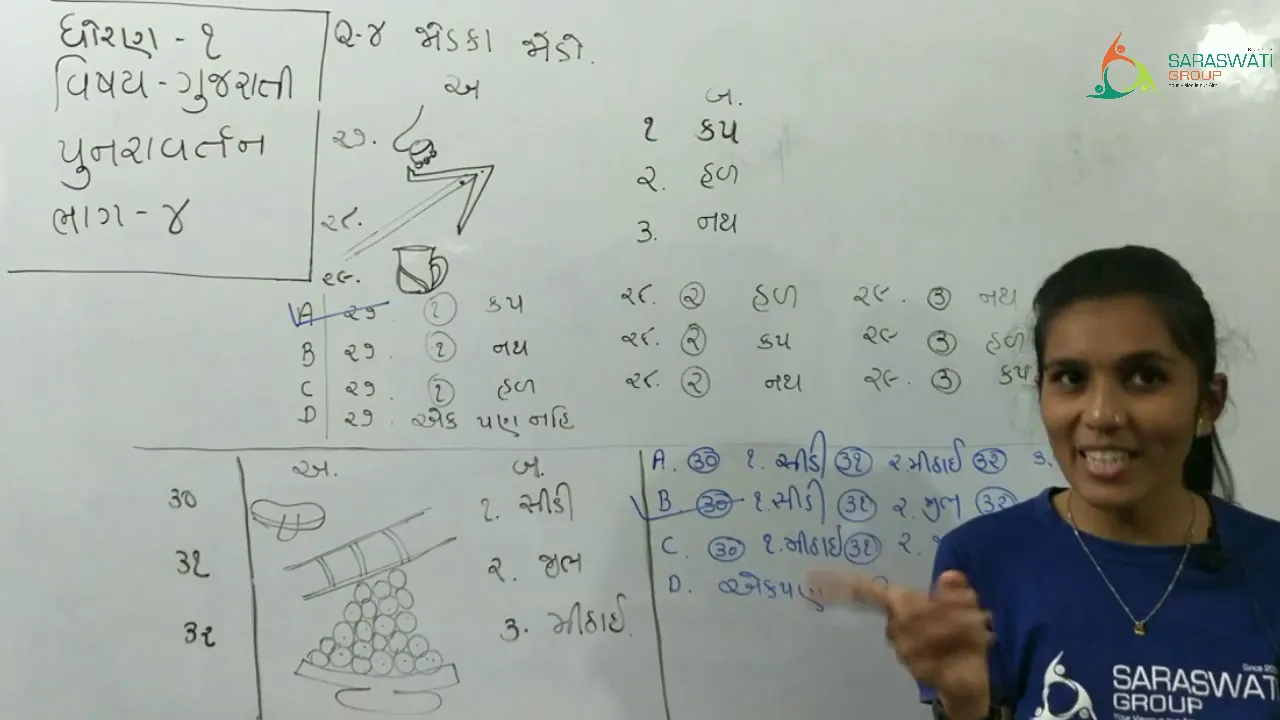 ધોરણ - ૧
વિષય - ગુજરાતી
પુનરાવર્તન
ભાગ - ૪
Q-૪ જોડકા જોડો.
અ
બ.
૨૭.
૨૮.
૨૯.
૧ કપ
૨. હળ
૩. નથ
A ૨૭ ૧ કપ ૨૮. ૨ હળ ૨૯. ૩ નથ
B ૨૭. ૧ નથ ૨૮. ૨ કપ ૨૯ ૩ હળ
C ૨૭. ૧ હળ ૨૮. ૨ નથ ૨૯. ૩ કપ
D ૨૭ એક પણ નહિ
અ. બ.
૩૦ ૧. સીડી
૩૧ ૨. જીભ
૩૨ ૩. મીઠાઈ
A. ૩૦ ૧. સીડી ૩૧ ૨ મીઠાઈ ૩૨ ૩.
B ૩૦ ૧. સીડી ૩૧ ૨. જીભ ૩૨
C. ૩૦ ૧. મીઠાઈ ૩૧ ૨.
D. એકપણ
SARASWATI
GROUP
SARASWATI
GROUP
Since